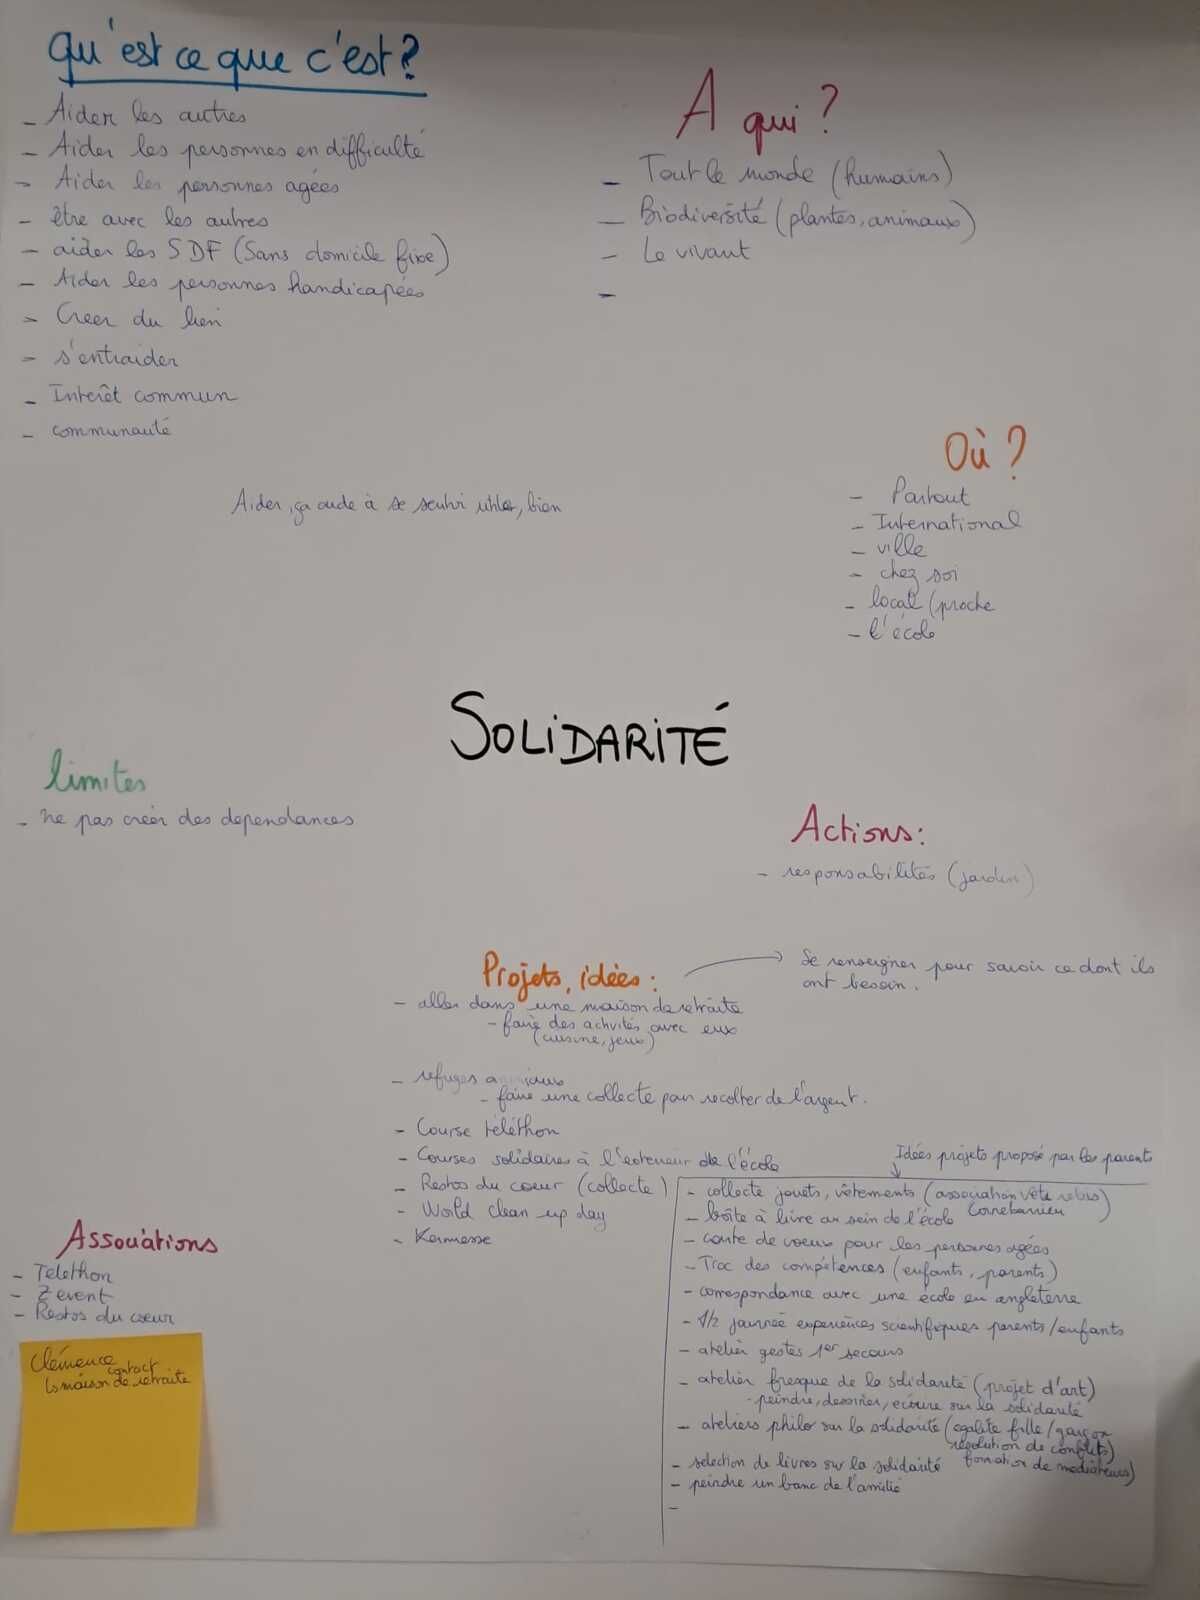 Qu'est ce que c'est?
- Aider les autres
- Aider les personnes en difficulté
- Aider les personnes agées
- être avec les autres
- aider les SDF (Sans domicile fixe)
- Aider les personnes handicapées
- Creer du lien
- s'entraider
- Interêt commun
- communauté
Aider, ça aide à se sentir utile, bien
A qui ?
- Tout le monde (humains)
- Biodiversité (plantes, animaux)
- Le vivant
-
Où ?
- Partout
- International
- ville
- chez soi
- local (proche
- l'école
SOLIDARITÉ
limites
- ne pas créer des dependances
Actions:
- responsabilités (jardin)
Projets, idées :
Se renseigner pour savoir ce dont ils
ont besoin.
- aller dans une maison de retraite
- faire des activités avec eux
(cuisine, jeux)
- refuges animaux
- faire une collecte pour recolter de l'argent.
- Course téléthon
- Courses solidaires à l'exterieur de l'école
- Restos du coeur (collecte)
- World clean up day
- Kermesse
Idées projets proposé par les parents
- collecte jouets, vêtements (association
Cornebarrieu
- boîte à livre au sein de l'école
- carte de voeux pour les personnes agées
- Troc des compétences (enfants, parents)
- correspondance avec une école en angleterre
- 1/2 journée experiences scientifiques parents/enfants
- atelier gestes 1er secours
- atelier fresque de la solidarité (projet d'art)
- peindre, dessiner, ecrire sur la solidarité
- ateliers philo sur la solidarité (egalite fille/garçon
résolution de conflits)
formation de mediateurs)
- selection de livres sur la solidarité
- peindre un banc de l'amitié
-
Associations
- Telethon
- Zevent
- Restos du coeur
Clémence
contact
la maison de retraite